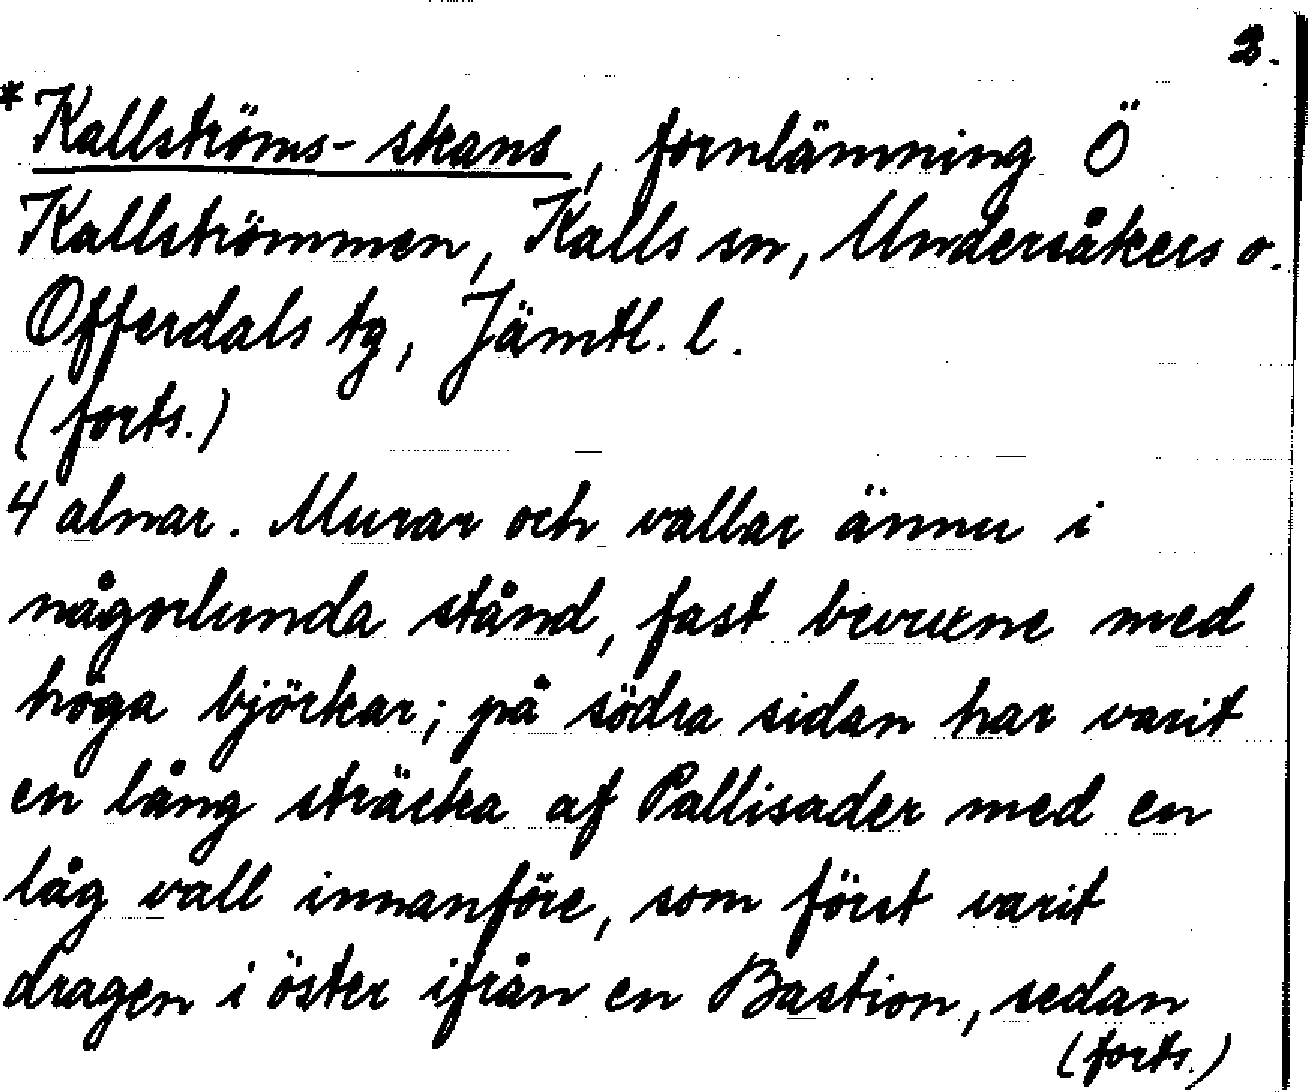 2.
*Kallströms-skans, fornlämning Ö
Kallströmmen, Kalls sn, Undersåkers o.
Offerdals tg, Jämtl. l.
(forts.)
4 alnar. Murar och vallar ännu i
någorlunda stånd, fast bevuxne med
höga björkar; på södra sidan har varit
en lång sträcka af Pallisader med en
låg vall innanföre, som först varit
dragen i öster ifrån en Bastion, sedan
(forts.)